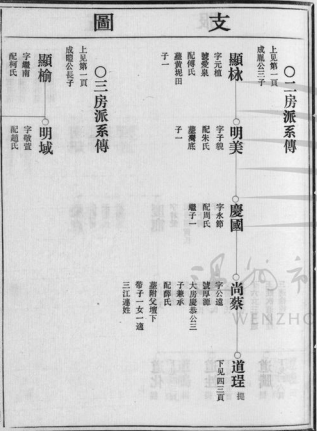 支圖
○二房派系傳
上見第一頁
成胤公三子
顯栐
字元楨
號愛泉
配傅氏
葬黃坭田
子一
○明美
字子毅
配朱氏
葬灣底
子一
○慶國
字永節
配周氏
繼子一
○尚蔡
字公遠
號厚源
大房慶恭公三
子兼承
配薛氏
葬附父壙下
帶子一女一適
三江連姓
○道珵
下見四三頁
○三房派系傳
上見第一頁
成暟公長子
顯榆
字繼南
配柯氏
○明域
字敬萱
配趙氏
WENZHO